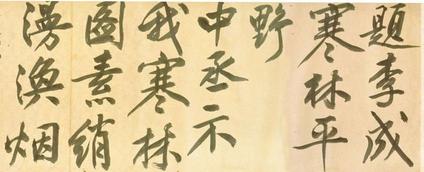 題李成
寒林平
野
中丞示
我寒林
圖素綃
漫渙烟